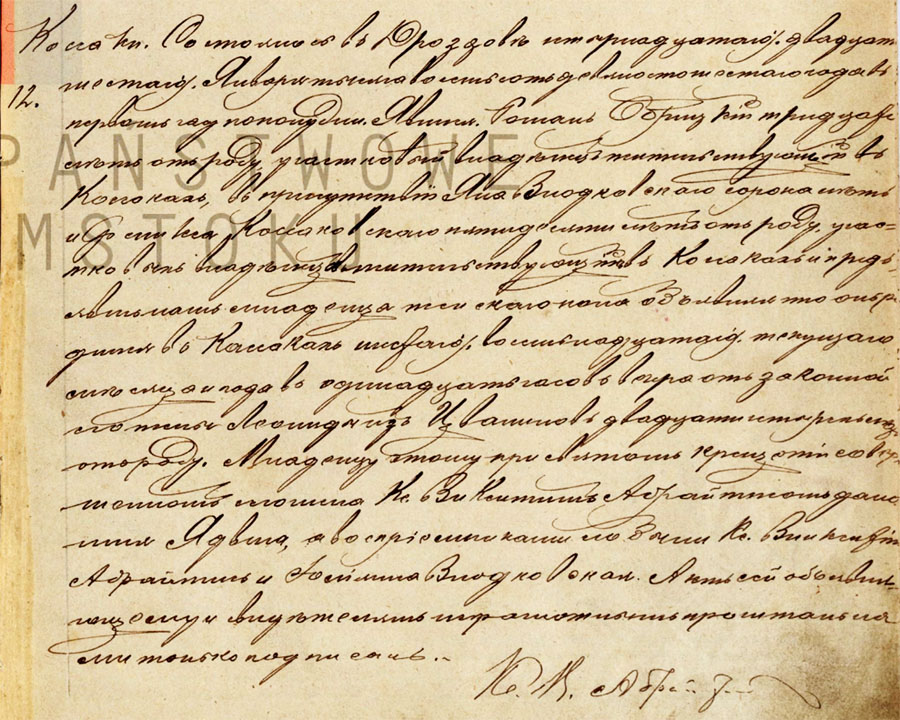 Косаки. Состоялось въ Дроздовѣ четырнадцатаго /двадцать
12. шестаго/ Января тысяча восемьсотъ девяносто шестаго года въ
первомъ час пополудни. Явился Романъ тридцать
лѣтъ отъ роду участковый владѣлецъ жительствующій въ
Косакахъ, въ присутствіи Яна Влодковскаго сорока лѣтъ
и Феликса Коссаковскаго пятидесяти лѣтъ отъ роду, учас-
тковыхъ владѣльцевъ жительствующихъ въ Косакахъ и предъ-
явилъ намъ младенца женскаго пола объявляя что онъ ро
дился въ Касакахъ шестаго /восемьнадцатаго/ текущаго
мѣсяца и года въ одинадцать часовъ вечера отъ законной
его жены Леониды изъ двадцати четырехъ лѣтъ
отъ роду. Младенцу этому при святомъ крещеніи совер
шенномъ Кс. Викентимъ Абрайтисомъ дано
имя Ядвига, а воспріемниками были Кс. Викентій
Абрайтисъ и Влодковская. Актъ сей объявля-
ющему и свидѣтелямъ неграмотнымъ прочитанъ на
ми только подписанъ.
К. В. Абрайтис
PAŃSTWOWE
MSTOKU